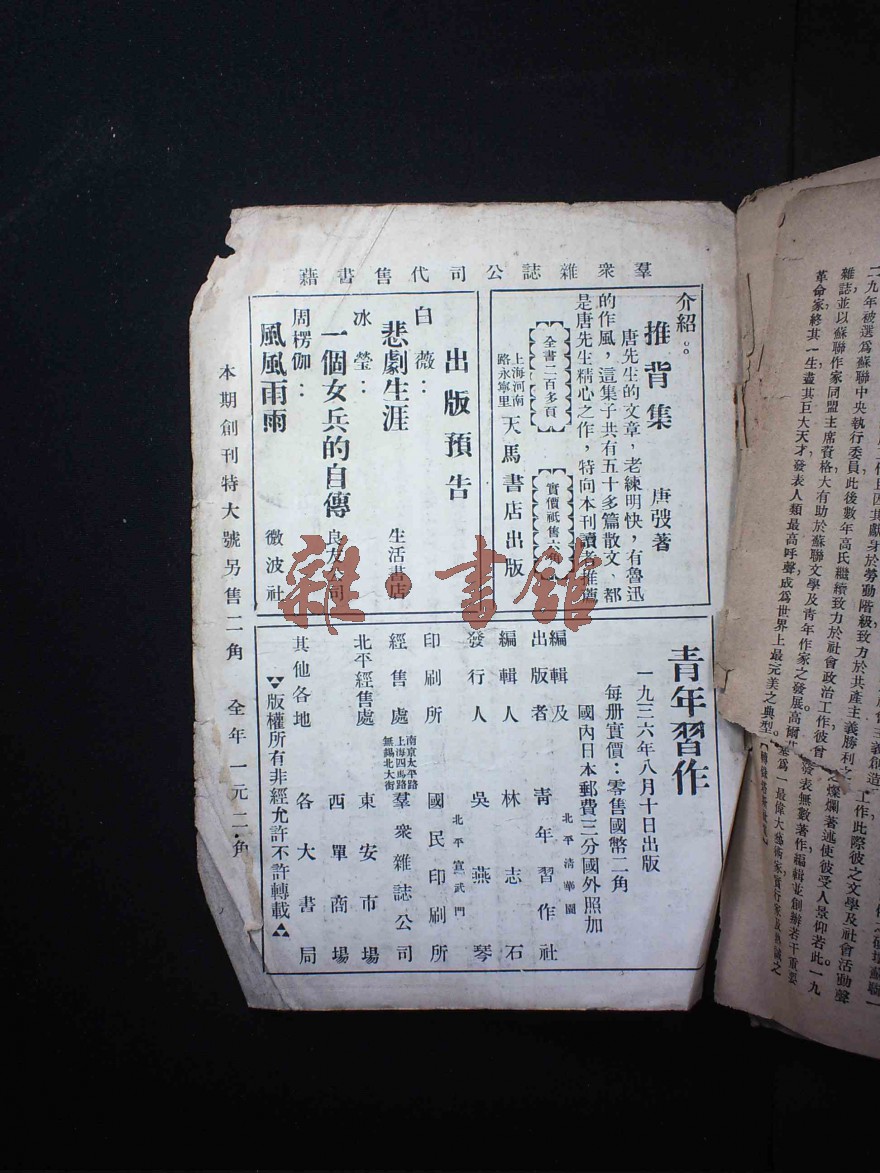 羣衆雜誌公司代售書籍
推背集 唐弢著
唐先生的文章，老練明快，有魯迅
的作風，這集子共有五十多篇散文、都
是唐先生精心之作，特向本刊讀者推薦
介紹。
全書二百多頁
實價祗售六角
上海河南
路永寧里
天馬書店出版
出版預告
白薇：
悲劇生涯 生活書店
冰瑩：
一個女兵的自傳 良友公司
周楞伽：
風風雨雨 微波社
青年習作
一九三六年八月十日出版
每册實價：零售國幣二角
國內日本郵費三分國外照加
編輯及
出版者 北平清華園 青年習作社
編輯人 林志石
發行人 吳燕琴
印刷所 北平宣武門 國民印刷所
經售處 南京太平路
上海四馬路
無錫北大街
羣衆雜誌公司
北平經售處 東安市場
西單商場
其他各地 各大書局
版權所有非經允許不許轉載
本期創刊特大號另售二角 全年一元二角
雜·書館
二九年被選爲蘇聯中央執行委員此後數年高氏繼續致力於社會政治工作彼曾
雜誌並以蘇聯作家同盟主席資格大有助於蘇聯文學及青年作家之發展高爾
革命家終其一生盡其巨大天才發表人類最高呼聲成爲世界上最完美之典型。
工作此際彼之文學及社會活動聲
之燦爛著述使彼受人景仰若此一九
發表無數著作編輯並創辦若干重要
爲一最偉大藝術家實行家及熱誠之